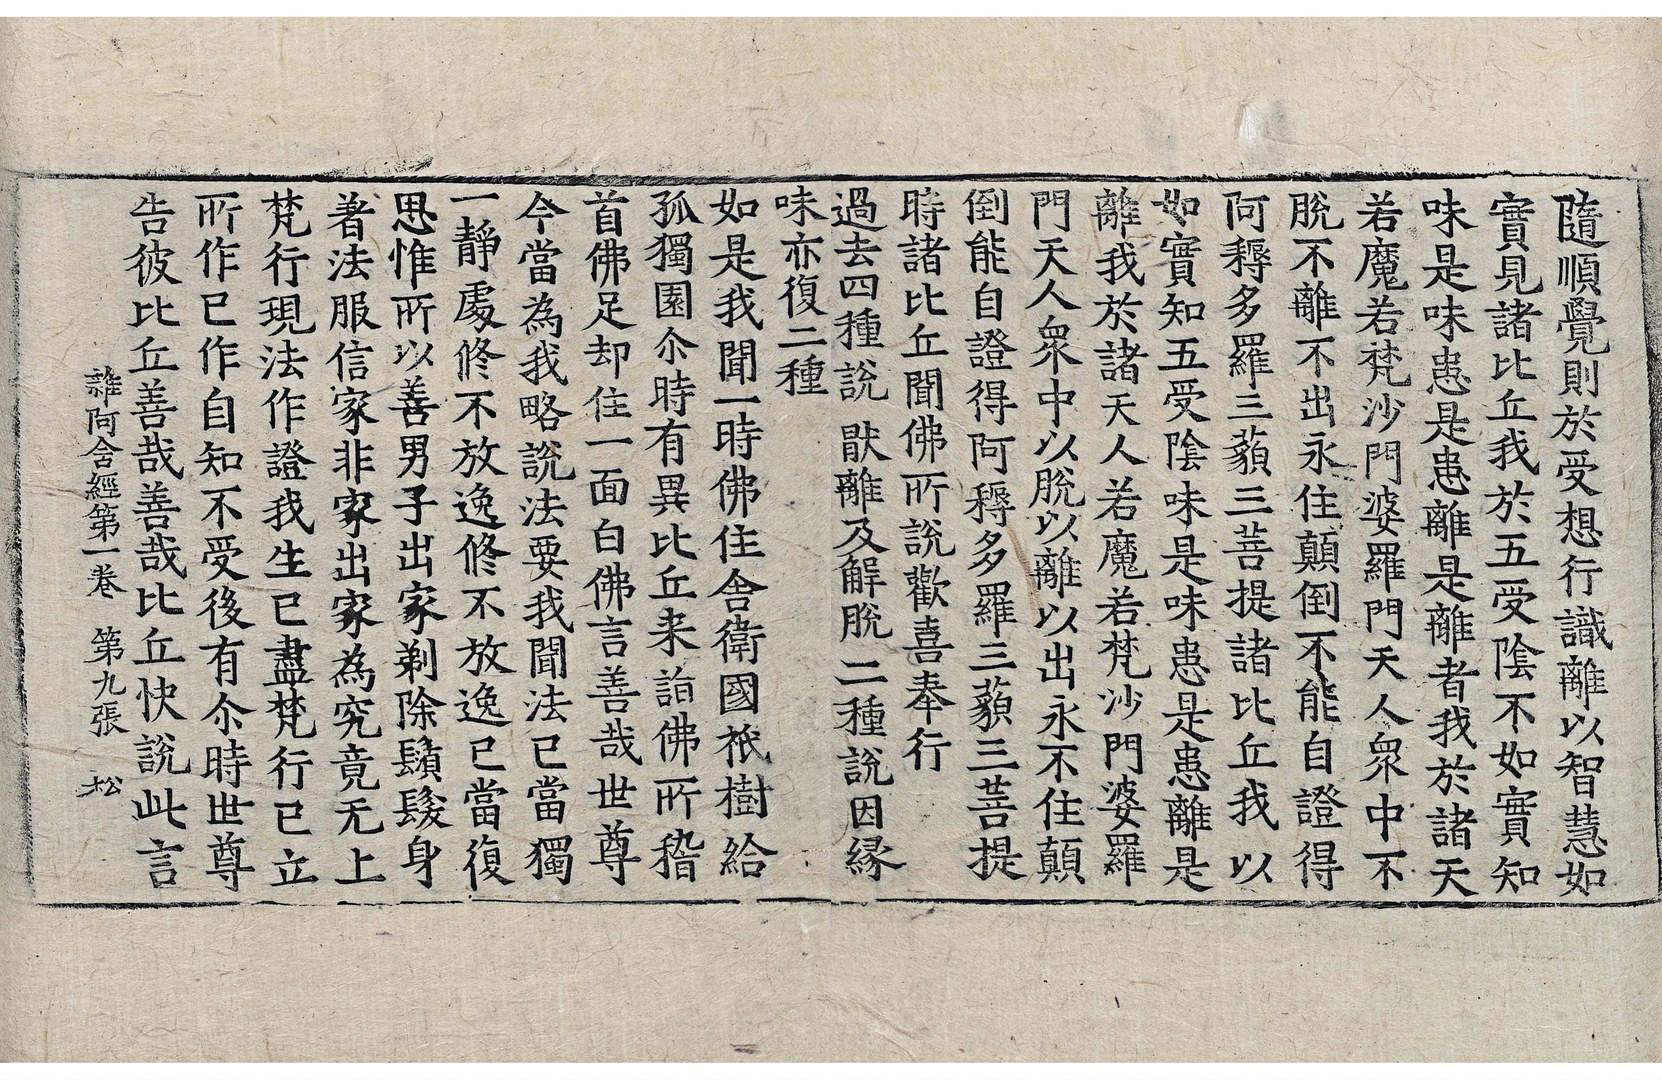 隨順覺則於受想行識離以智慧如
實見諸比丘我於五受陰不如實知
味是味患是患離是離者我於諸天
若魔若梵沙門婆羅門天人衆中不
脫不離不出永住顛倒不能自證得
阿耨多羅三藐三菩提諸比丘我以
如實知五受陰味是味患是患離是
離我於諸天人若魔若梵沙門婆羅
門天人衆中以脫以離以出永不住顛
倒能自證得阿耨多羅三藐三菩提
時諸比丘聞佛所說歡喜奉行
過去四種說 猒離及解脫 二種說因緣
味亦復二種
如是我聞一時佛住舍衛國祇樹給
孤獨園尒時有異比丘来詣佛所稽
首佛足却住一面白佛言善哉世尊
今當為我略說法要我聞法已當獨
一靜處修不放逸修不放逸已當復
思惟所以善男子出家剃除鬚髮身
著法服信家非家出家為究竟无上
梵行現法作證我生已盡梵行已立
所作已作自知不受後有尒時世尊
告彼比丘善哉善哉比丘快說此言
雜阿含經第一卷 第九張 松